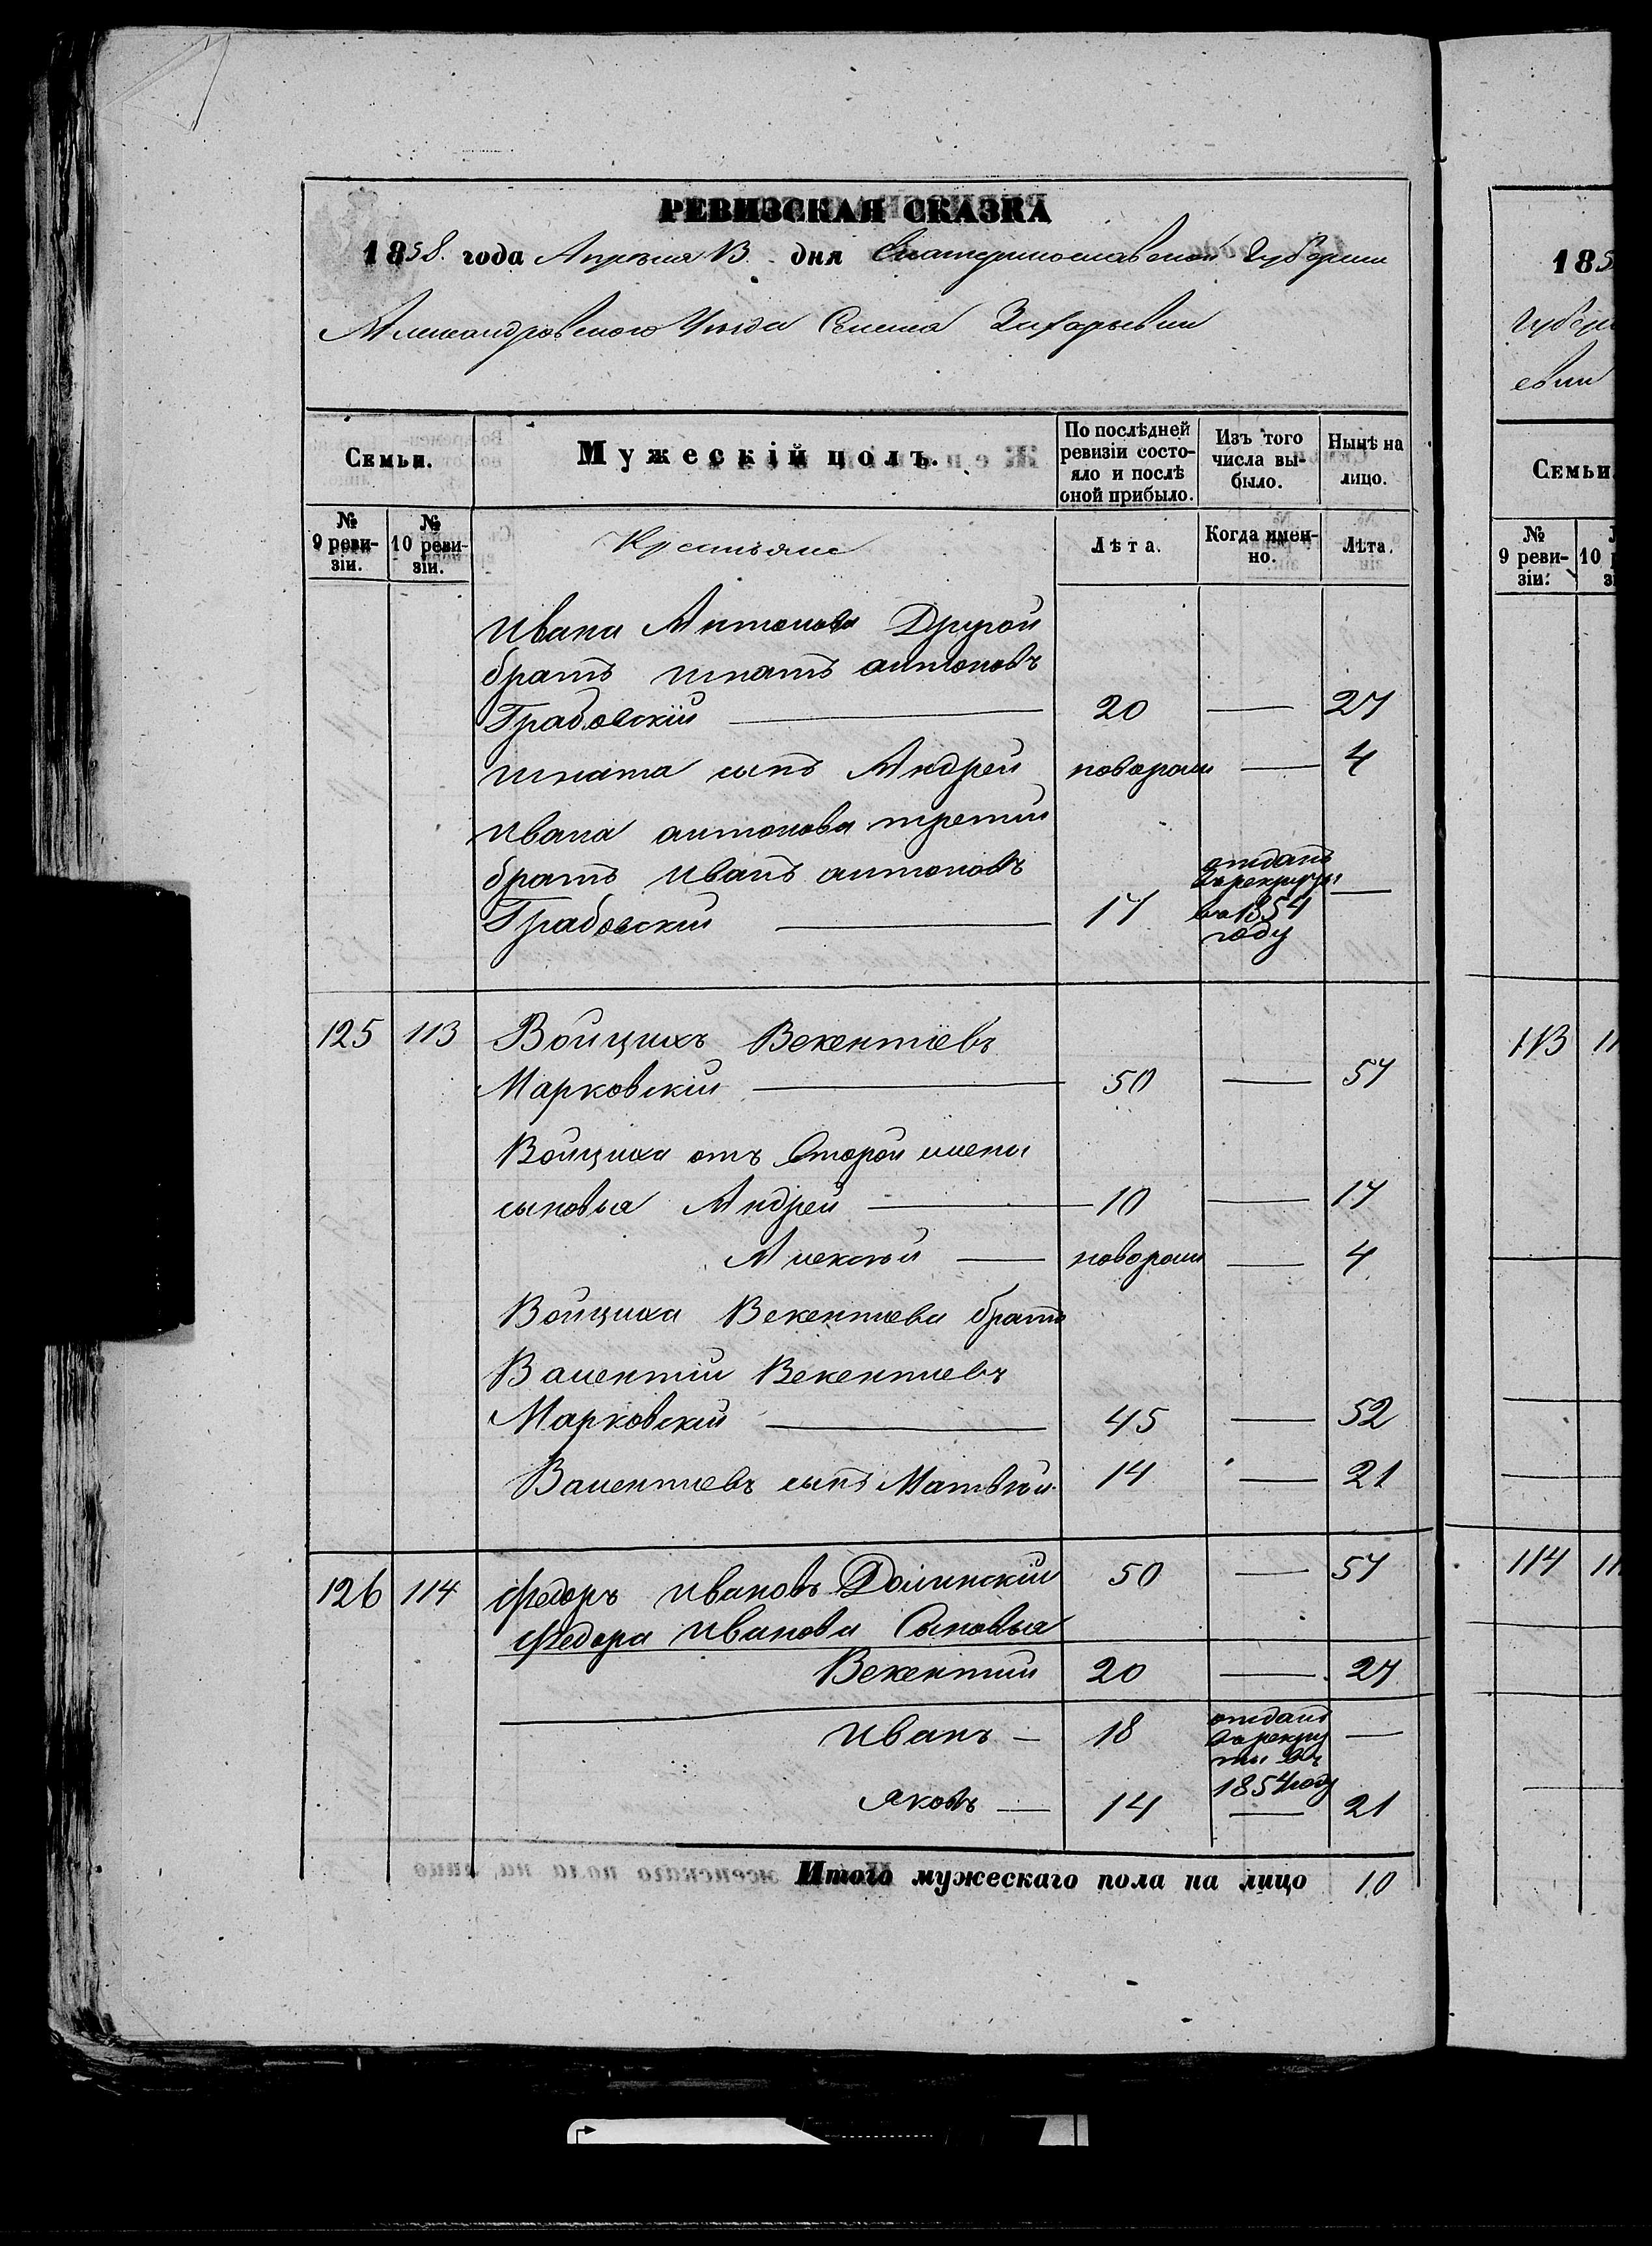 РЕВИЗСКАЯ СКАЗКА
1858. года Апрѣля 13. дня Екатеринославской Губернии
Александровского Уѣзда Селенiя Захарьевки
Семьи.
Мужескiй полъ.
По послѣдней ревизiи состояло и послѣ оной прибыло.
Изъ того числа выбыло.
Нынѣ на лицо.
№ 9 ревизiи.
№ 10 ревизiи.
Крестьяне
Лѣта.
Когда именно.
Лѣта.
Ивана Антонова Другой
братъ Игнатъ антоновъ
Грабовскiй 20 — 27
Игната сынъ Андрей новорож — 4
Ивана антонова третiй
братъ Иванъ антоновъ
Грабовскiй 17 отданъ въ рекруты въ 1854 году —
125 113 Войцихъ Векентiевъ
Марковскiй 50 — 57
Войциха отъ второй жены
сыновья Андрей — 10 — 17
Алексѣй — новорож — 4
Войциха Векентiева братъ
Валентiй Векентiевъ
Марковскiй 45 — 52
Валентiевъ сынъ Матвѣй 14 — 21
126 114 Федоръ Ивановъ Долинскiй 50 — 57
Федора Иванова Сыновья
Векентiй 20 — 27
Иванъ — 18 отданъ въ рекруты въ 1854 году —
Яковъ — 14 — 21
Итого мужескаго пола на лицо 10
185
Губерн
евки
Семьи
№ 9 ревизiи.
10
113 11
114 11